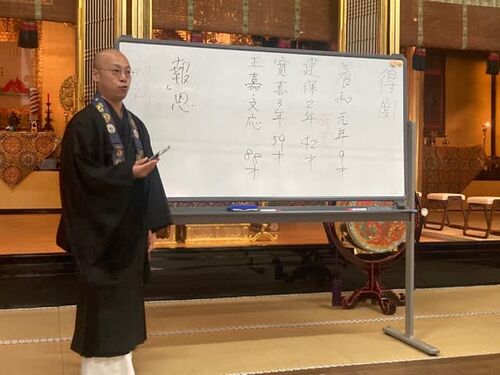 得度
養和元年9才
建保2年42才
寛喜3年59才
正嘉文応 85才
「報恩」